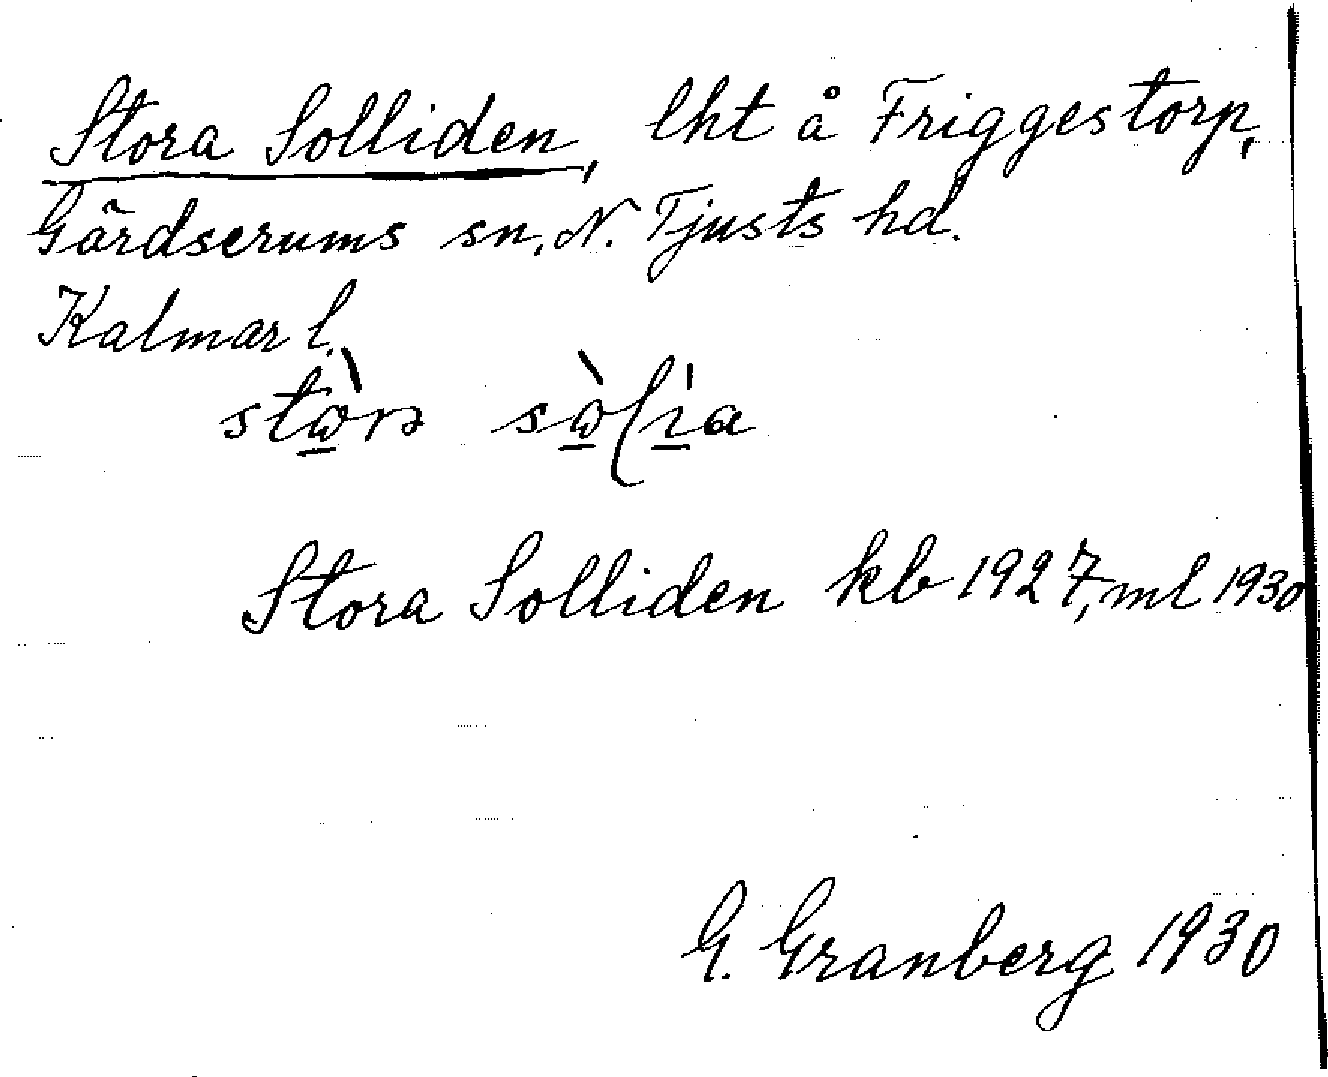 Stora Solliden, lht å Friggestorp,
Gärdserums sn, N. Tjusts hd.
Kalmar l.
Stora Solliden kb 1927, ml 1930
G. Granberg 1930